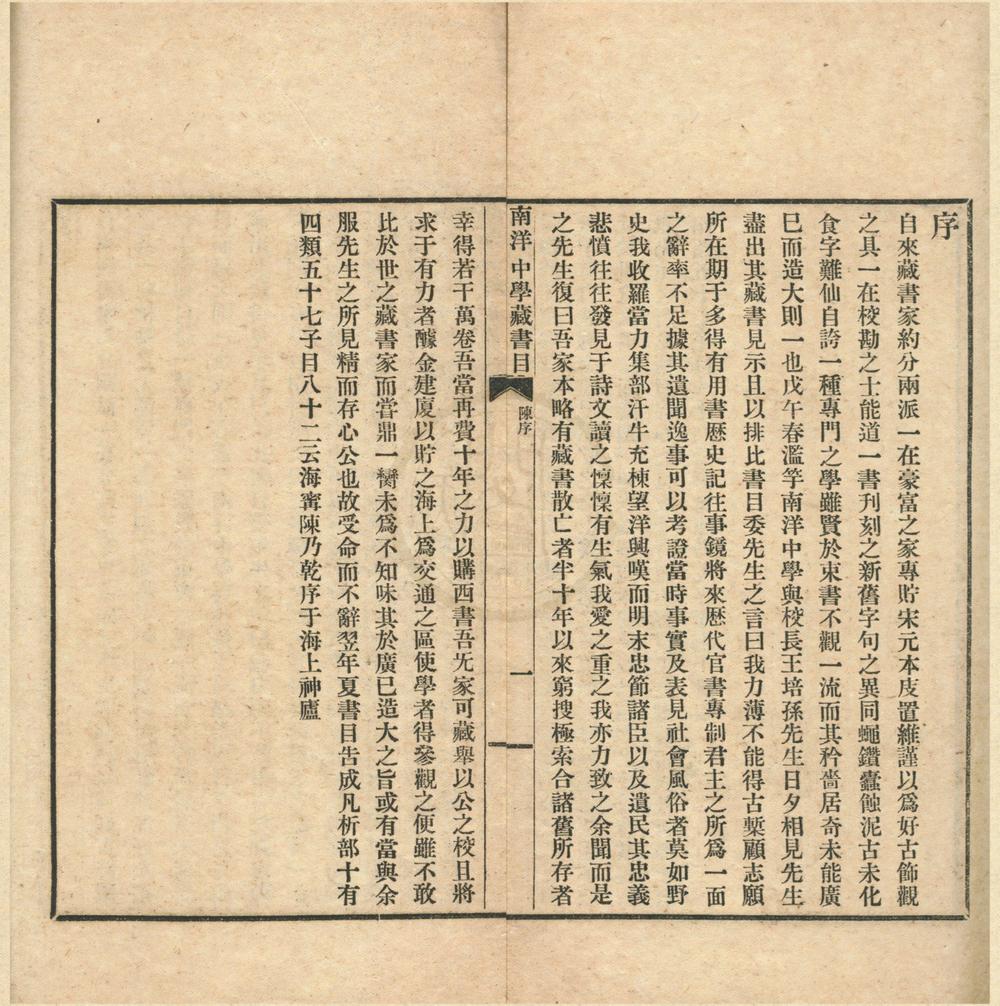 序
自來藏書家約分兩派一在豪富之家專貯宋元本庋置維謹以爲好古飾觀
之具一在校勘之士能道一書刊刻之新舊字句之異同蠅鑽蠹蝕泥古未化
食字難仙自誇一種專門之學雖賢於束書不觀一流而其矜嗇居奇未能廣
巳而造大則一也戊午春濫竽南洋中學與校長王培孫先生日夕相見先生
盡出其藏書見示且以排比書目委先生之言曰我力薄不能得古槧顧志願
所在期于多得有用書歷史記往事鏡將來歷代官書專制君主之所爲一面
之辭率不足據其遺聞逸事可以考證當時事實及表見社會風俗者莫如野
史我收羅當力集部汗牛充棟望洋興嘆而明末忠節諸臣以及遺民其忠義
悲憤往往發見于詩文讀之懍懍有生氣我愛之重之我亦力致之余聞而是
之先生復曰吾家本略有藏書散亡者半十年以來窮搜極索合諸舊所存者
南洋中學藏書目
陳序
一
幸得若干萬卷吾當再費十年之力以購西書吾旡家可藏舉以公之校且將
求于有力者醵金建廈以貯之海上爲交通之區使學者得參觀之便雖不敢
比於世之藏書家而嘗鼎一臠未爲不知味其於廣已造大之旨或有當與余
服先生之所見精而存心公也故受命而不辭翌年夏書目告成凡析部十有
四類五十七子目八十二云海甯陳乃乾序于海上神廬